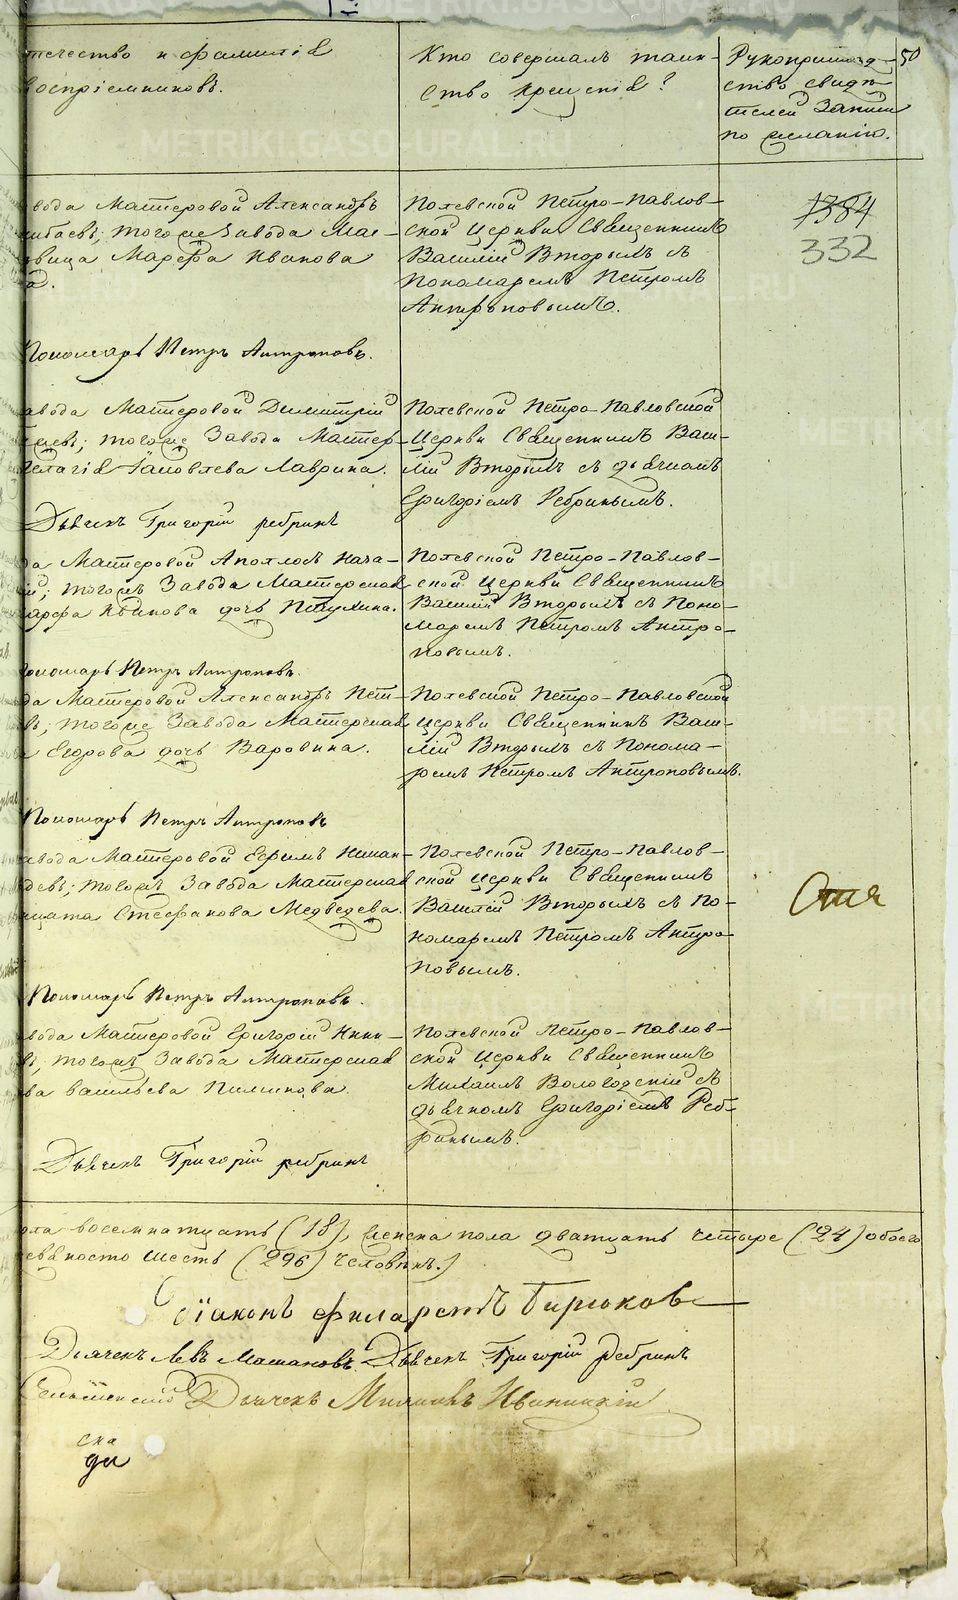 отчество и фамилія
воспріемниковъ.
Кто совершалъ таин-
ство крещенія?
Рукоприклад-
ство свидѣ-
телей записи
по желанію.
50
вода Мастеровой Александръ
тогоже Завода Мас-
вица Марѳа Иванова
Полевской Петро-Павлов-
ской Церкви Священникъ
Василій Вторыхъ съ
Пономаремъ Петромъ
Антроповымъ.
1384
332
Пономарь Петръ Антроповъ.
авода Мастеровой Димитрій
тогоже Завода Мастер-
Пелагія Іаковлева Лаврина.
Полевской Петро-Павловской
Церкви Священникъ Васи-
лій Вторыхъ съ дьячкомъ
Григоріемъ Ребринымъ.
Дьячекъ Григорій Ребринъ
да Мастеровой Аполлосъ
тогожъ Завода Мастерская
Марфа Иванова дочь Петухина.
Полевской Петро-Павлов-
ской Церкви Священникъ
Василій Вторыхъ съ Поно-
маремъ Петромъ Антро-
повымъ.
Пономарь Петръ Антроповъ.
да Мастеровой Александръ Пет-
въ; тогоже Завода Мастерская
а Егорова дочь Варовина.
Полевской Петро-Павловской
Церкви Священникъ Васи-
лій Вторыхъ съ Понома-
ремъ Петромъ Антроповымъ.
Пономарь Петръ Антроповъ
авода Мастеровой Ефимъ
тогожъ Завода Мастерская
Стефанова Медведева.
Полевской Петро-Павлов-
ской Церкви Священникъ
Василій Вторыхъ съ По-
номаремъ Петромъ Антро-
повымъ.
Пономарь Петръ Антроповъ.
вода Мастеровой Григорій Ники-
въ, тогожъ Завода Мастерская
ва Васильева Пилипова.
Полевской Петро-Павлов-
ской Церкви Священникъ
Михаилъ Вологодскій съ
дьячкомъ Григоріемъ Реб-
ринымъ.
Дьячекъ Григорій Ребринъ
пола восемнатцать (18), женска пола дватцать четыре (24) обоего
девяносто шесть (296) человѣкъ.)
Діаконъ Филаретъ Бирюковъ
Дьячекъ Левъ Дьячекъ Григорій Ребринъ
Дьячекъ
METRIKI.GASO-URAL.RU